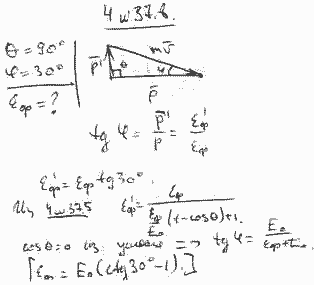 4 ш 37.8.
θ = 90°
φ = 30°
ε_ф = ?
p̄' θ mv̄ φ
p̄
tg φ = p̄'/p̄ = ε'_ф/ε_ф
ε'_ф = ε_ф tg 30°.
Из 4 ш 37.5 ε'_ф = ε_ф / (ε_ф/E₀ (1 - cos θ) + 1).
cos θ = 0 из условия => tg φ = E₀/(ε_ф + E₀)
[ε_ф = E₀(ctg 30° - 1).]